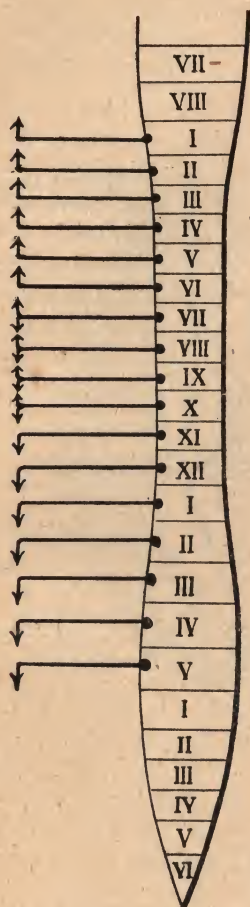 VII
VIII
I
II
III
IV
V
VI
VII
VIII
IX
X
XI
XII
I
II
III
IV
V
I
II
III
IV
V
VI